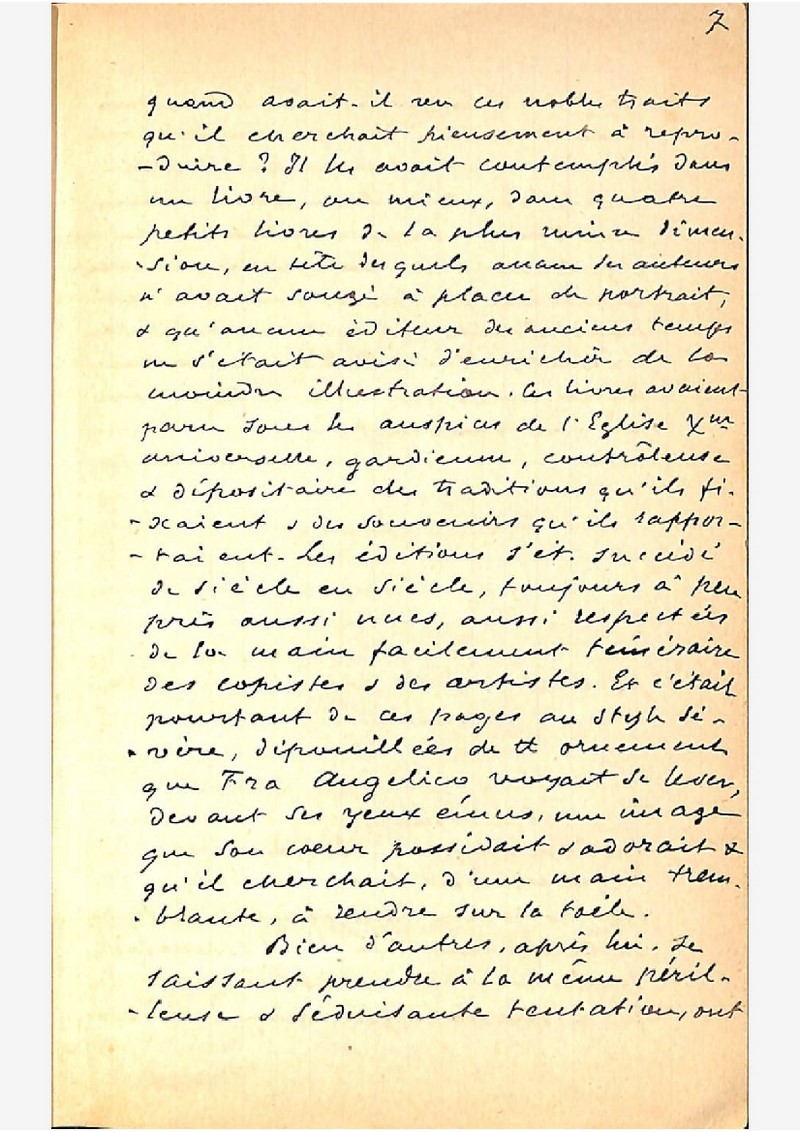 7
quand avait-il vu ces nobles traits
qu'il cherchait pieusement à repro-
-duire ? Il les avait contemplés dans
un livre, ou mieux, dans quatre
petits livres de la plus mince dimen-
-sion, en tête desquels aucun des auteurs
n'avait songé à placer de portrait,
& qu'aucun éditeur des anciens temps
ne s'était avisé d'enrichir de la
moindre illustration. Ces livres avaient
paru sous les auspices de l'Eglise Xnne
universelle, gardienne, contrôleuse
& dépositaire des traditions qu'ils fi-
-xaient & des souvenirs qu'ils rappor-
-taient. Les éditions s'ét. succédé
de siècle en siècle, toujours à peu
près aussi nues, aussi respectées
de la main facilement téméraire
des copistes & des artistes. Et c'était
pourtant de ces pages au style sé-
-vère, dépouillées de tt ornement
que Fra Angelico voyait se lever,
devant ses yeux émus, une image
que son coeur possédait & adorait &
qu'il cherchait, d'une main trem-
-blante, à rendre sur la toile.
Bien d'autres, après lui, se
laissant prendre à la même péril-
-leuse & séduisante tentation, ont